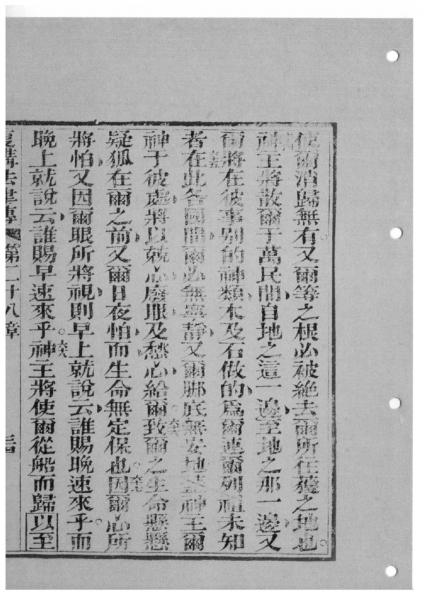 使爾消歸無有又爾等之根必被絕去爾所在獲之地也
神王將散爾于萬民間自地之這一邊至地之那一邊又
爾將在彼事別的神類木及石做的爲爾連爾列祖未知
者在此各國間爾必無寧靜又爾脚底無安地葢神王爾
神于彼處將以兢心廢眼及愁心給爾致爾之生命懸懸
疑狐在爾之前又爾日夜怕而生命無定保也因爾心所
將怕又因爾眼所將視則早上就說云誰賜晚速來乎而
晚上就說云誰賜早速來乎神王將使爾從船而歸以至
復講法律傳 第二十八章 三四